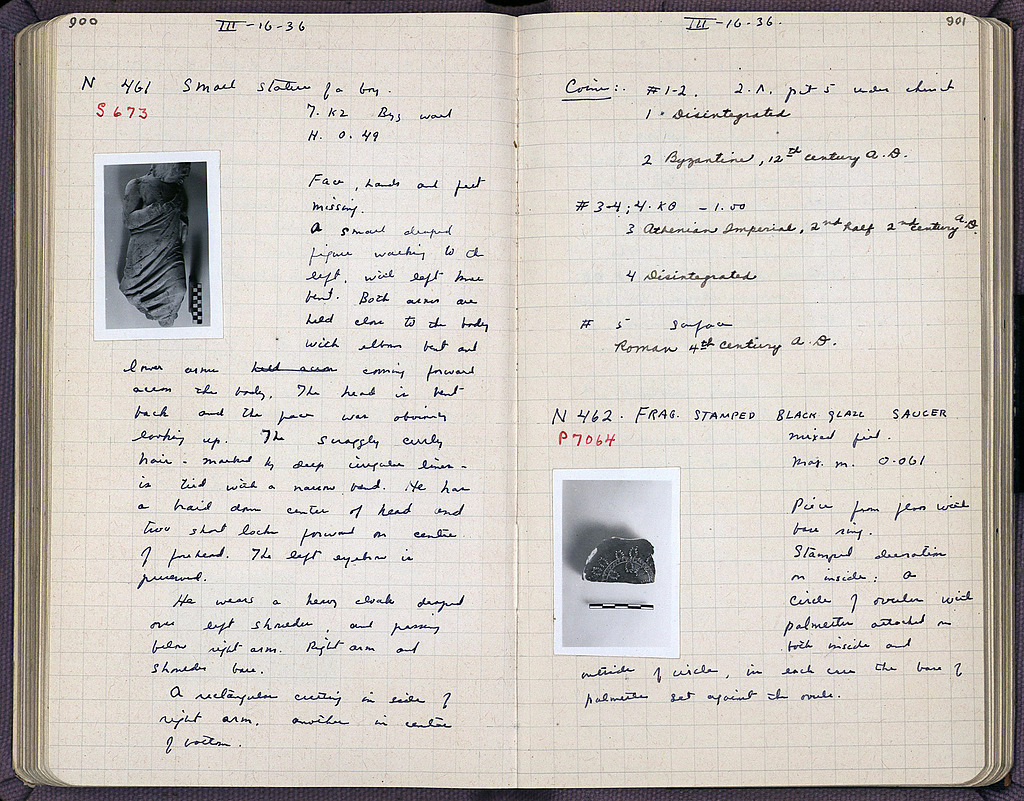 900
III-16-36
N 461 Small statue of a boy.
S 673
7. KZ Byz wall
H. 0.49
Face, hands and feet
missing.
A small draped
figure walking to the
left, with left knee
bent. Both arms are
held close to the body
with elbows bent and
lower arms held across coming forward
across the body. The head is bent
back and the face was obviously
looking up. The scraggly curly
hair - marked by deep irregular lines -
is tied with a narrow band. He has
a braid down center of head and
two short locks forward on centre
of forehead. The left eyebrow is
preserved.
He wears a heavy cloak draped
over left shoulder, and passing
below right arm. Right arm and
shoulder bare.
A rectangular cutting in side of
right arm, another in centre
of bottom.
901
III-16-36.
Coins: #1-2. 2.Λ. pit 5 under church
1 Disintegrated
2 Byzantine, 12th century A.D.
#3-4; 4. KΘ -1.00
3 Athenian Imperial, 2nd half 2nd century A.D.
4 Disintegrated
# 5 Surface
Roman 4th century A.D.
N 462. FRAG. STAMPED BLACK GLAZE SAUCER
P 7064
mixed fill.
Max. m. 0.061
Piece from floor with
base ring.
Stamped decoration
on inside: a
circle of ovules with
palmettes attached on
both inside and
outside of circle, in each case the base of
palmettes set against the ovule.